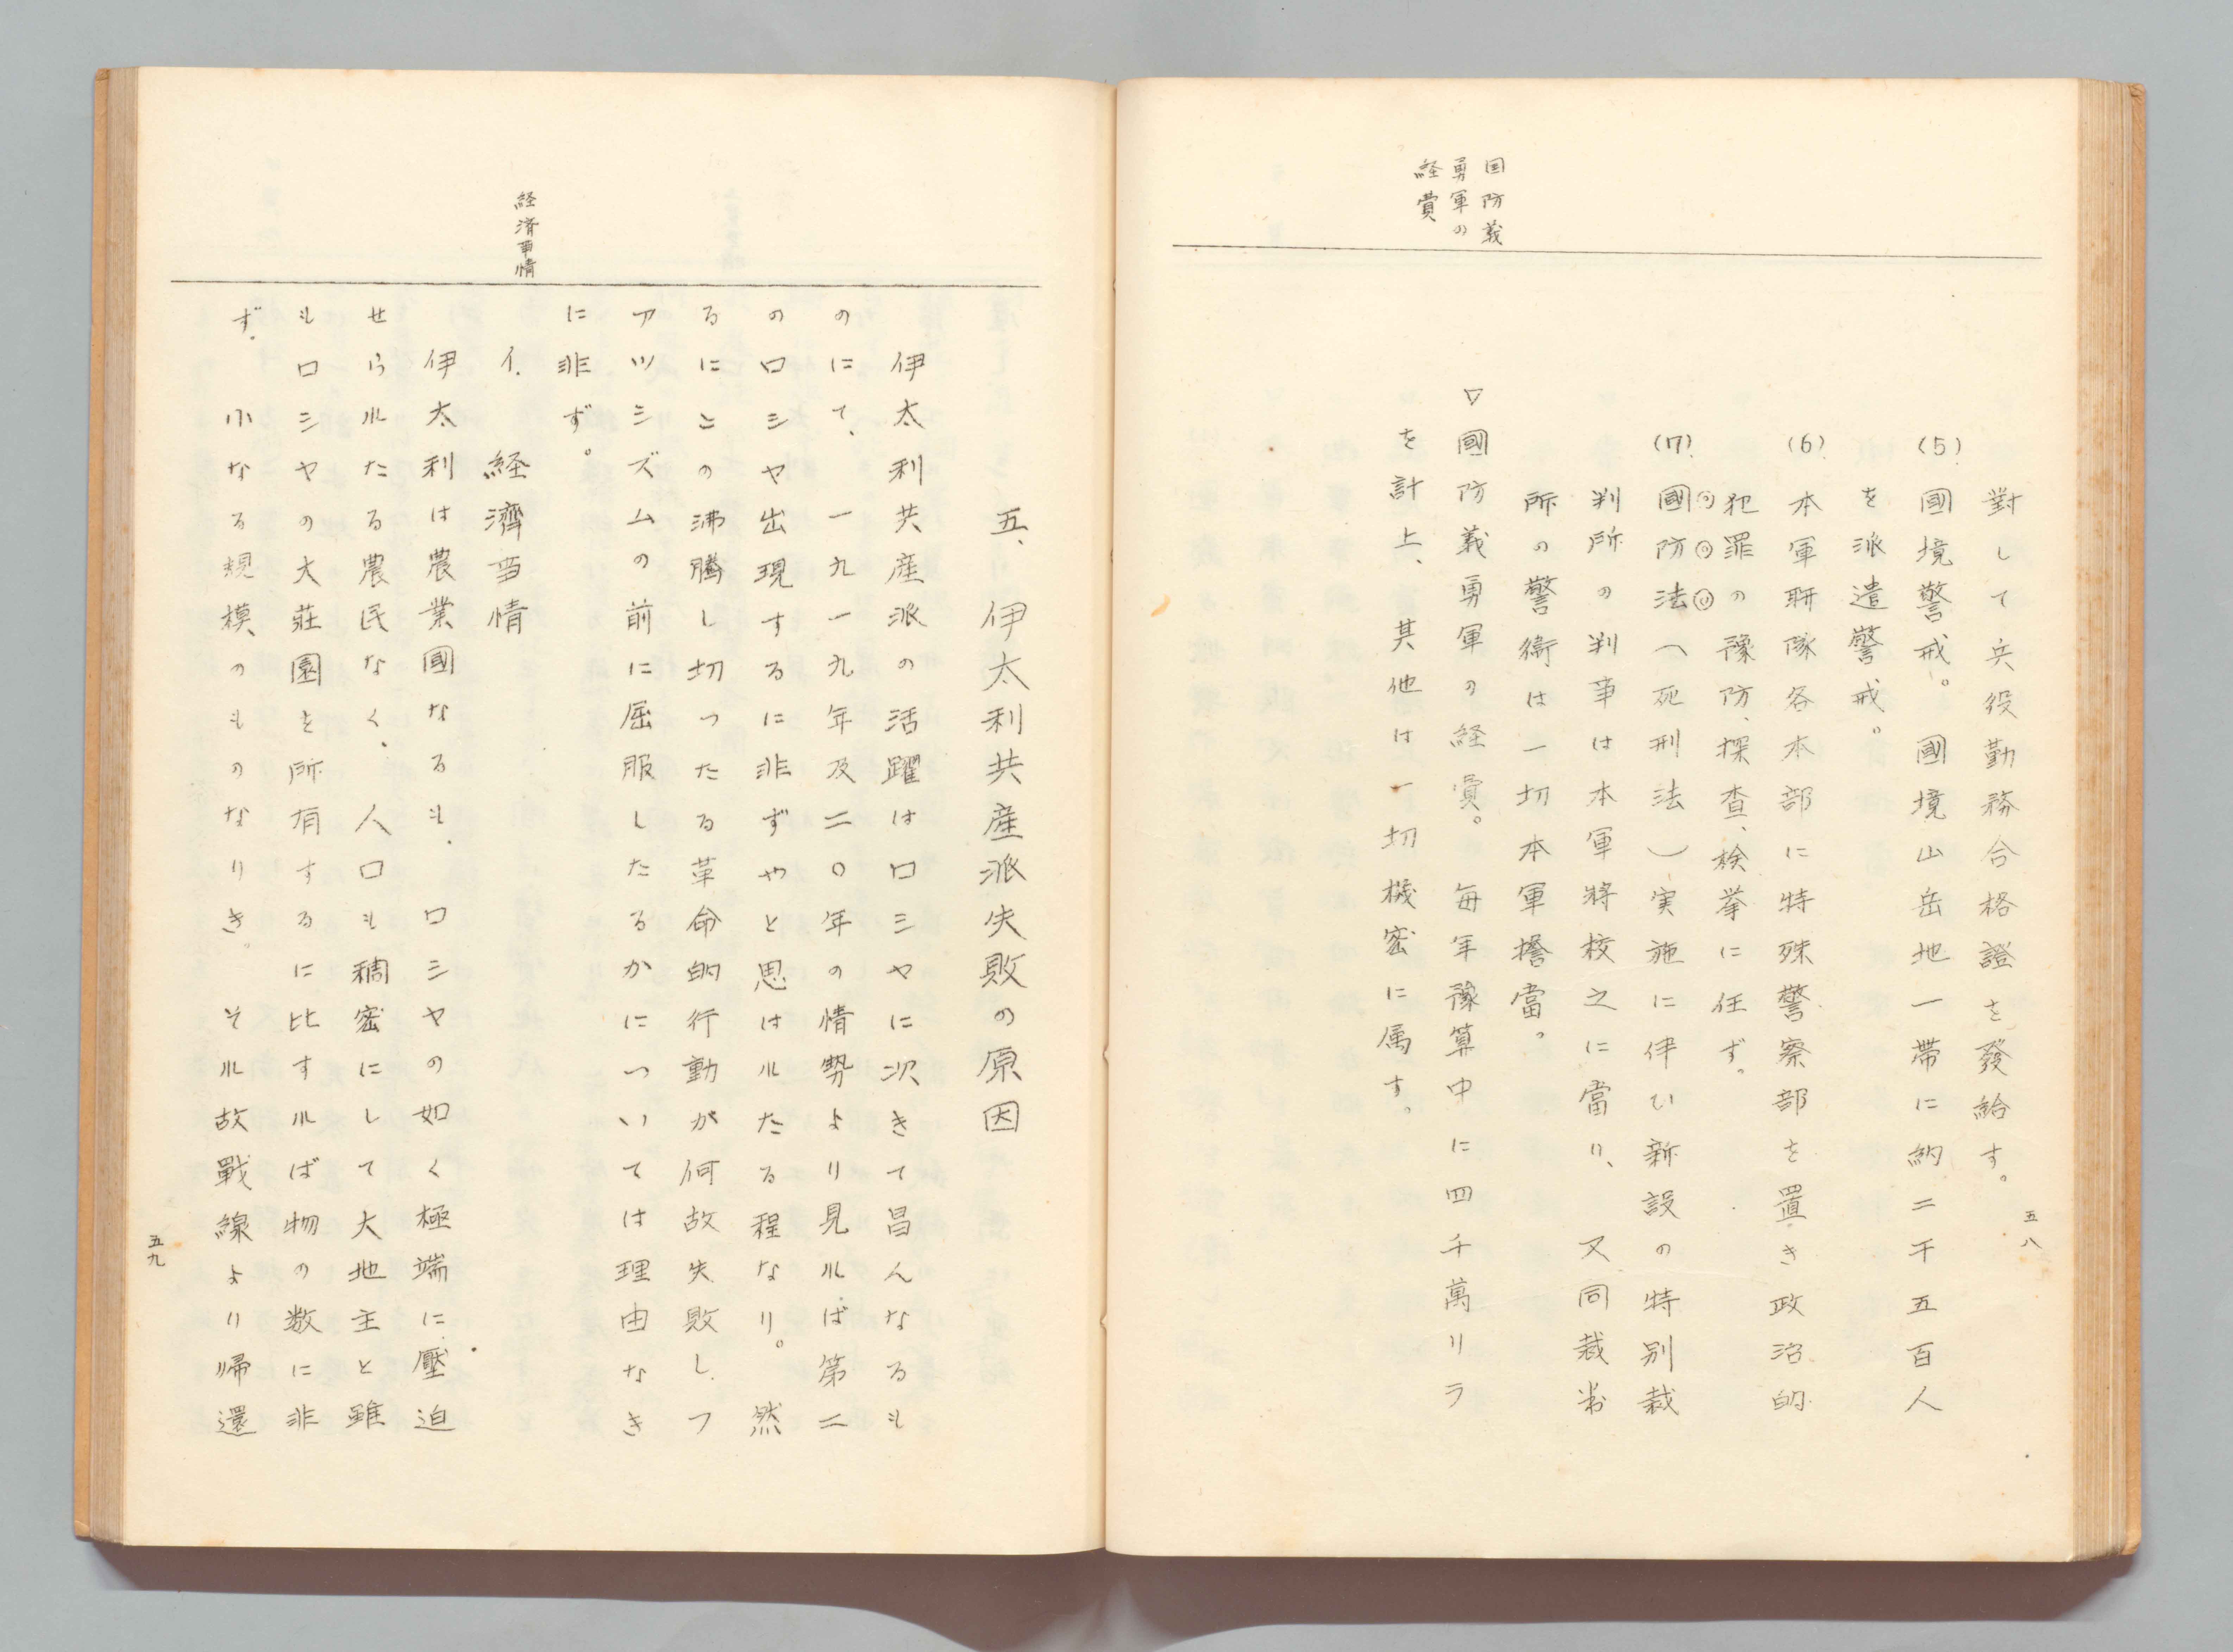 国防義
勇軍の
経費
五八
對して兵役勤務合格證を發給す。
(5) 國境警戒。國境山岳地一帶に約二千五百人
を派遣警戒。
(6) 本軍聯隊各本部に特殊警察部を置き政治的
犯罪の豫防、探査、検挙に任ず。
(7) 國防法(死刑法)実施に伴ひ新設の特別裁
◎◎◎
判所の判事は本軍將校之に當り、又同裁判
所の警衞は一切本軍擔當。
▽國防義勇軍の経費。毎年豫算中に四千萬リラ
を計上、其他は一切機密に属す。
経済事情
五、伊太利共産派失敗の原因
伊太利共産派の活躍はロシヤに次きて昌んなるも
のにて、一九一九年及二〇年の情勢より見ルば第二
のロシヤ出現するに非ずやと思はルたる程なり。然
るにこの沸騰し切つたる革命的行動が何故失敗しフ
アツシズムの前に屈服したるかについては理由なき
に非ず。
イ. 経濟事情
伊太利は農業國なるも、ロシヤの如く極端に壓迫
せらルたる農民なく、人口も稠密にして大地主と雖
もロシヤの大莊園を所有するに比すルば物の数に非
ず、小なる規模のものなりき。そル故戰線より帰還
五九